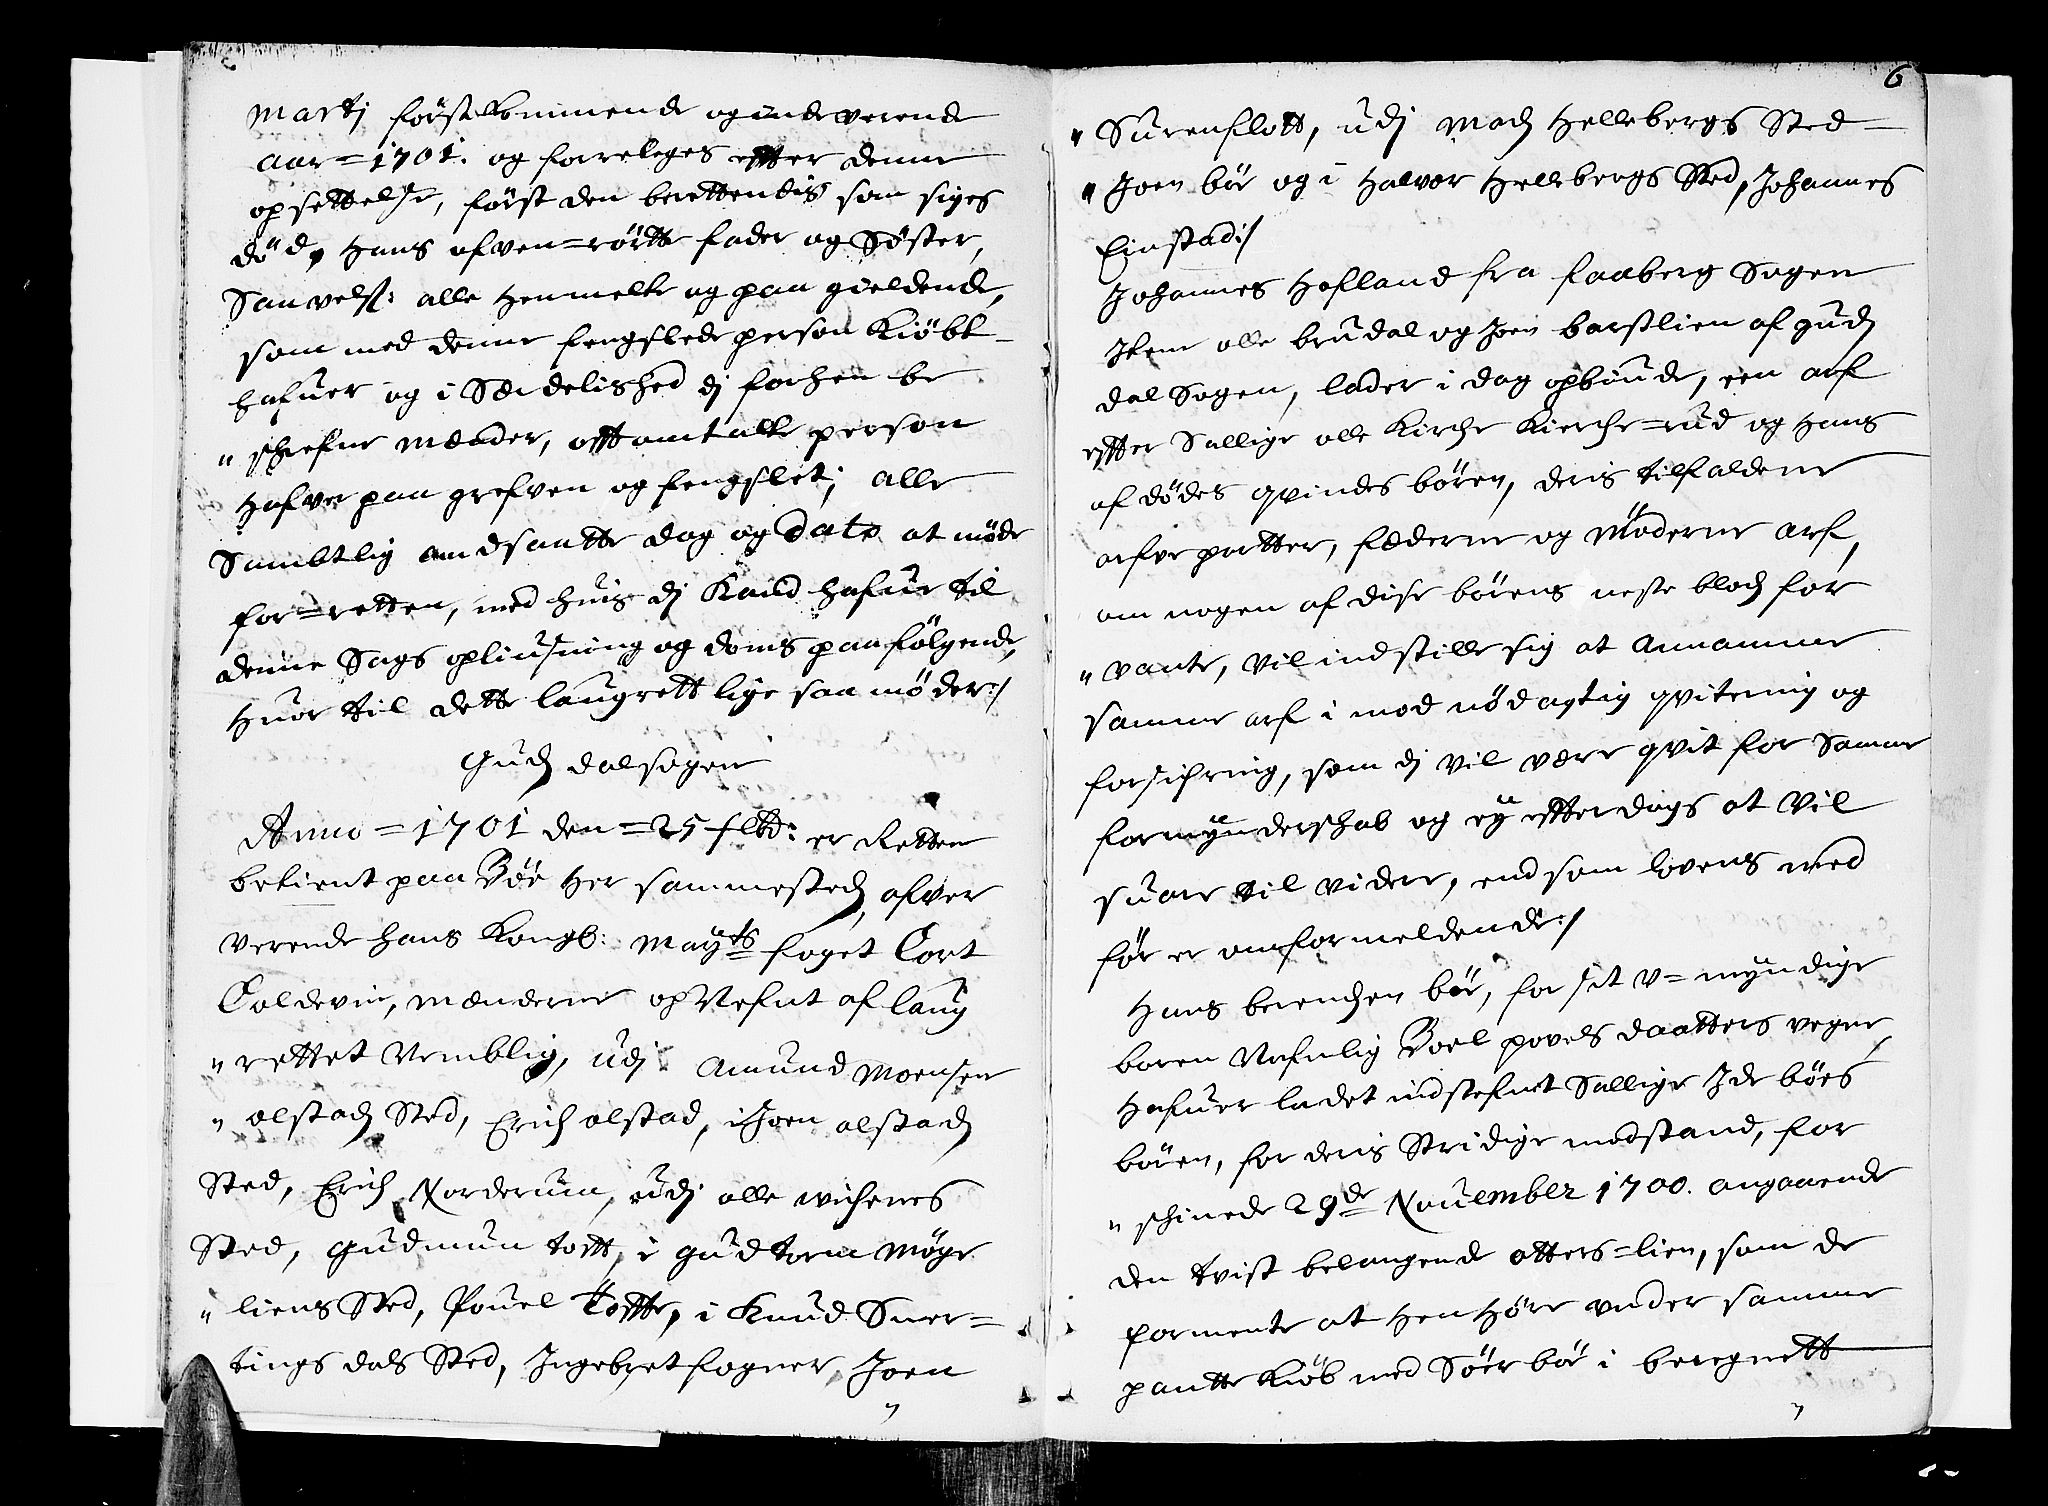 Martj förstkommende og inde werende
aar = 1701. og forreleges efter denne
opsettelse, först den berettendis som siges
död, Hans ofven = rörtte fader og Söster,
Sauvelst: alle Hemmelte og paa gieldende,
som med denne fengslede person Kiöbt
hafuer og i Særdelished dj forhen be
" schrefne mænder, offtomtalte person
Hafver paa grefven og fengslet; alle
Sambtlig andsautte dag og dato at möde
for = retten, med huis dj Kand hafue til
denne Sags opliusning og doms paafölgende,
Huor til dette laugrett lige saa möder:/
Gudj dalsogen
Anno = 1701 den = 25 febd: er Retten
betient paa Böe Her sammestedz, ofver
verende Hans Kongl: Mayts foget Cort
Coldevin, mænderne opNefnt af laug
" rettet Nemblig, udj Amund Moensen
" olstadz Sted, Erich olstad, i Joen olstadz
Sted, Erich Norderum, udj olle wichenes
Sted, Gudmun toftt, i gudtorm Möge
" liens Sted, Pouel Toftte, i Knud Suer =
tings dals Sted, Ingebret fogner, Joen
6
" Surenflott, udj Madz Hellebergs Sted
" Joen böe og i Halvor Hellebergs Sted, Johannes
Einstad:/
Johannes Hofland fra faaberg Sogen
Item olle brudal og Joen barstlien af gudj
dal Sogen, lader i dag opbiude, een arf
effter Sallige olle Kirche Kierche = rud og Hans
af dödes qvindes bören, deris tilfaldene
arfve partter, fæderne og Möderne arf,
om nogen af dise börens neste blodz for
" vante, vil indstille sig at Annamme
samme arf i mod nödagtig qvitering og
forsichring, som dj vil være qvit for Samme
formynderschab og ey effterdags at vil
suare til videre, end som lovens med
för er omformeldende:/
Hans berendsen böe, for sit V = myndige
baren Nafnlig Boel povels daatters vegne
Hafuer ladet indstefnt Sallige Ide böes
bören, for deris Stridige modstand, for
" schinede 29de Nouember 1700. angaaende
den tvist belangende otters = lien, som de
formente at Hen Höre under samme
pantte Kiöb med Söer böe i beregnett